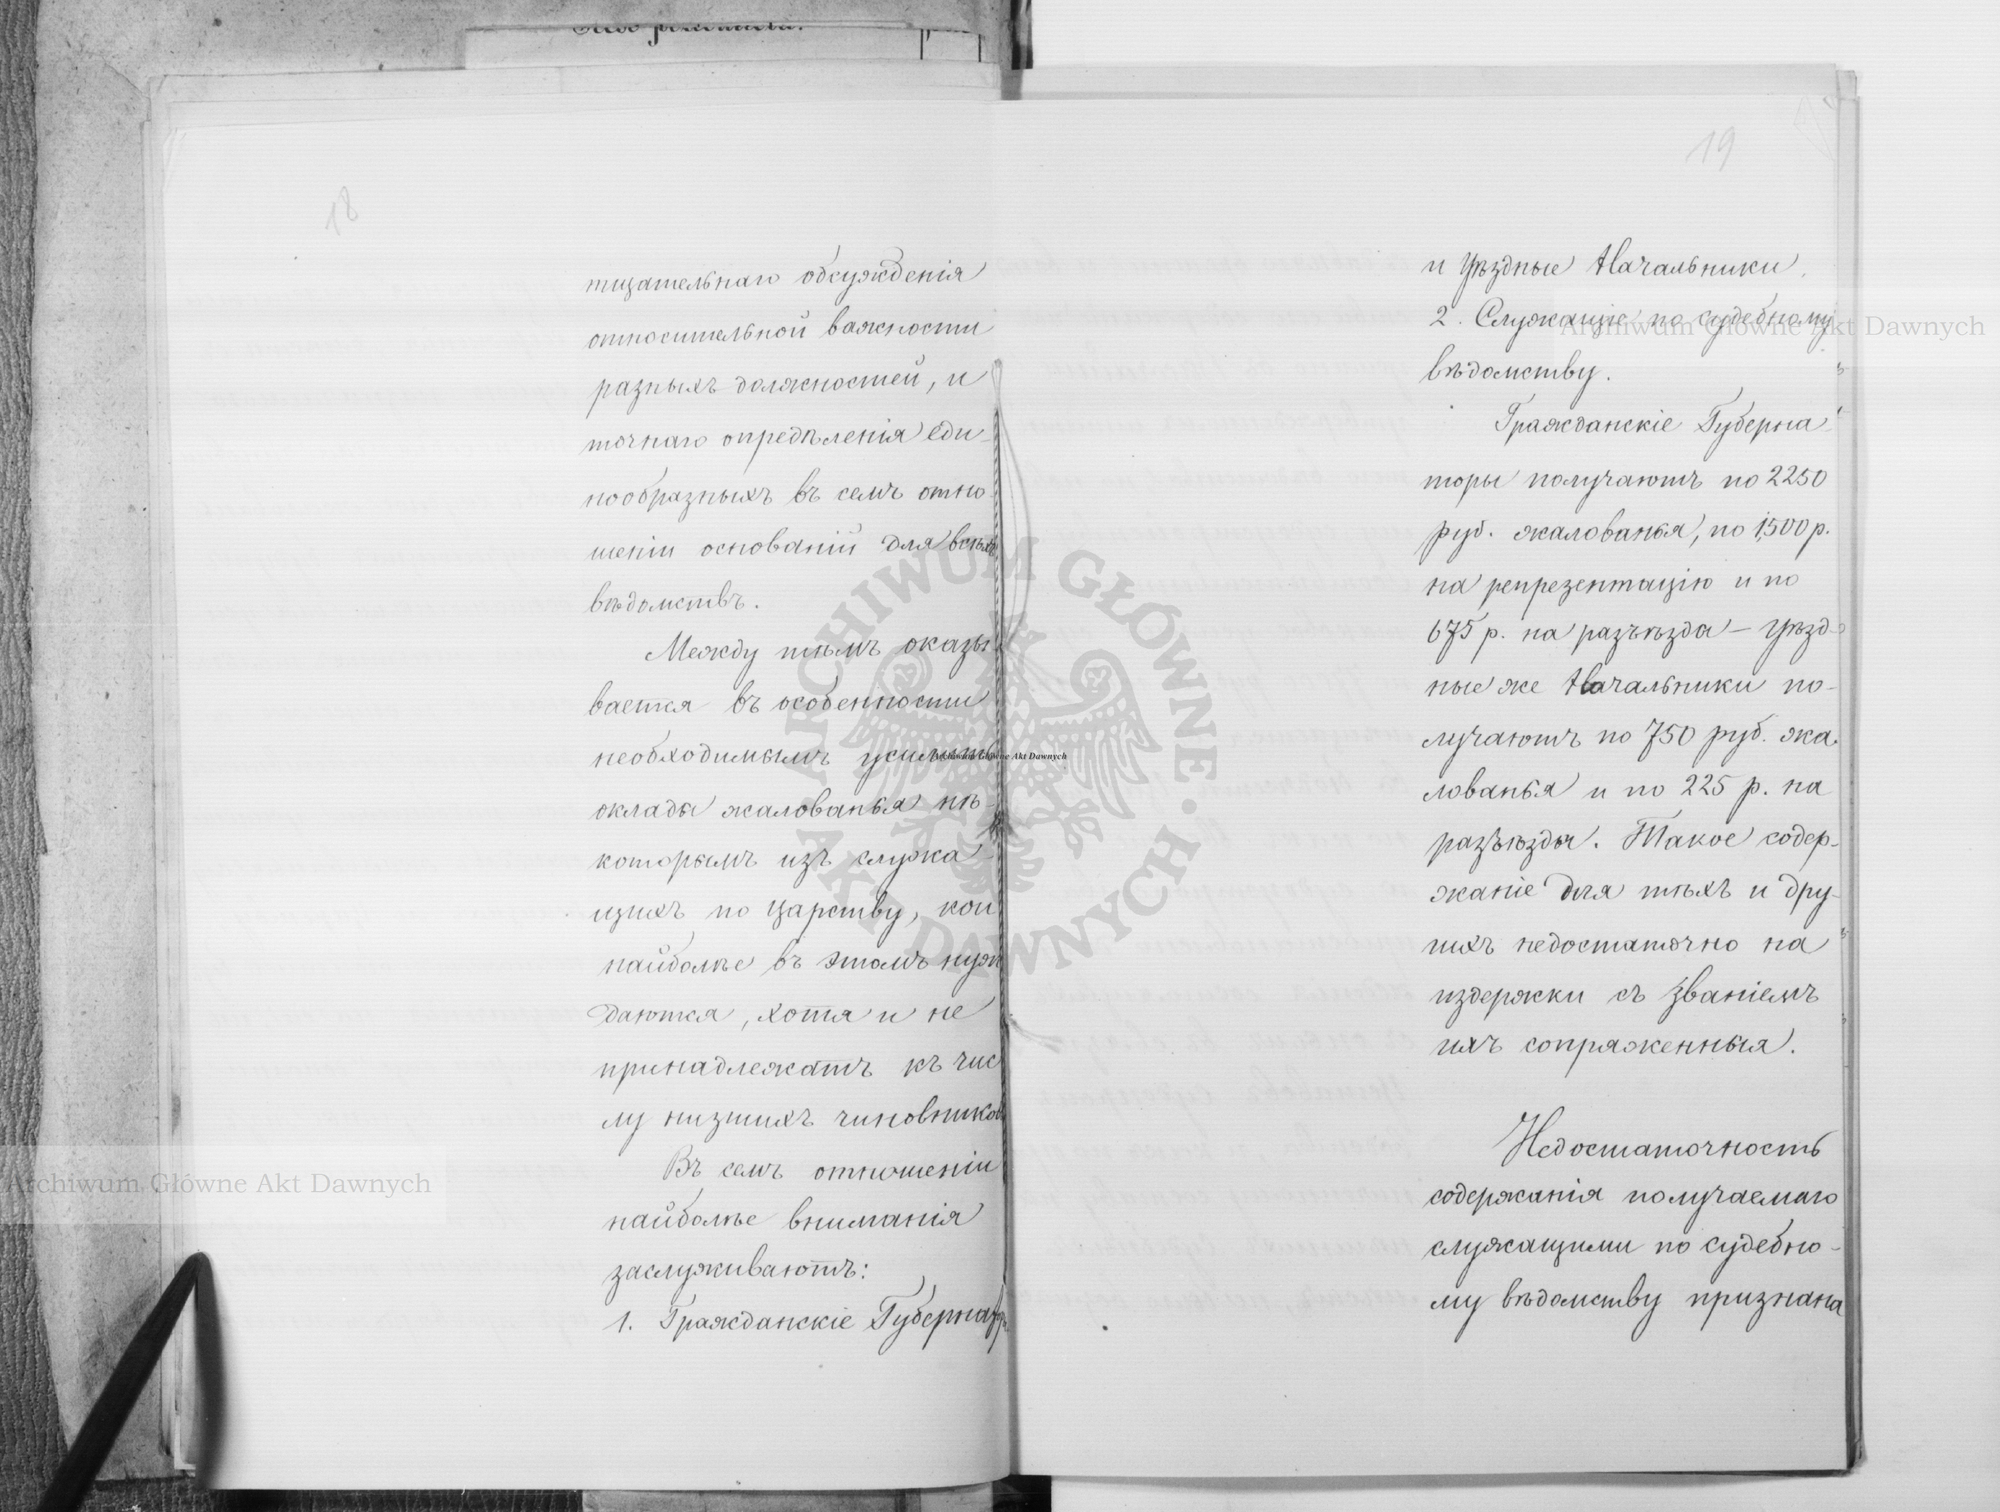 18
тщательнаго обсужденія
относительной важности
разныхъ должностей, и
точнаго опредѣленія еди-
нообразныхъ въ семъ отно-
шеніи основаній для всѣхъ
вѣдомствъ.
Между тѣмъ оказы-
вается въ особенности
необходимымъ усилить
оклады жалованья нѣ-
которымъ изъ служа-
щихъ по Царству, кои
наиболѣе въ этомъ нуж
даются, хотя и не
принадлежатъ къ чис
лу низшихъ чиновников
Въ семъ отношеніи
наиболѣе вниманія
заслуживаютъ:
1. Гражданскіе Губернаторы
19
и Уѣздные Начальники.
2. Служащіе по судебному
вѣдомству.
Гражданскіе Губерна-
торы получаютъ по 2250
руб. жалованья, по 1,500 р.
на репрезентацію и по
675 р. на разъѣзда — Уѣзд-
ные же Начальники по-
лучаютъ по 750 руб. жа-
лованья и по 225 р. на
разъѣзды. Такое содер-
жаніе для тѣхъ и дру-
гихъ недостаточно на
издержки съ званіемъ
ихъ сопряженныя.
Недостаточность
содержанія получаемаго
служащими по судебно-
му вѣдомству признана
ARCHIWUM GŁÓWNE AKT DAWNYCH
Archiwum Główne Akt Dawnych
Archiwum Główne Akt Dawnych
Archiwum Główne Akt Dawnych